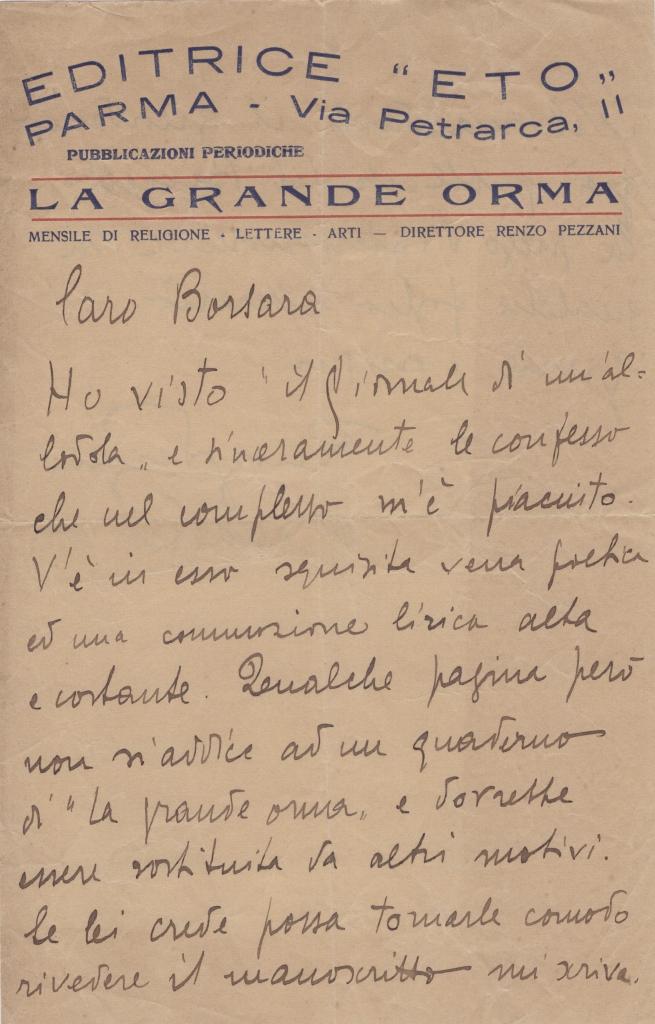 EDITRICE "ETO"
PARMA - Via Petrarca, 11
PUBBLICAZIONI PERIODICHE
LA GRANDE ORMA
MENSILE DI RELIGIONE - LETTERE - ARTI — DIRETTORE RENZO PEZZANI
Caro Borsara
Ho visto "il giornale di un'al=
lodola" e sinceramente le confesso
che nel complesso m'è piaciuto.
V'è in esso squisita vena poetica
ed una commozione lirica alta
e costante. Qualche pagina però
non s'addice ad un quaderno
di "La grande orma" e dovrebbe
essere sostituita da altri motivi.
Se lei crede possa tornarle comodo
rivedere il manoscritto mi scriva.